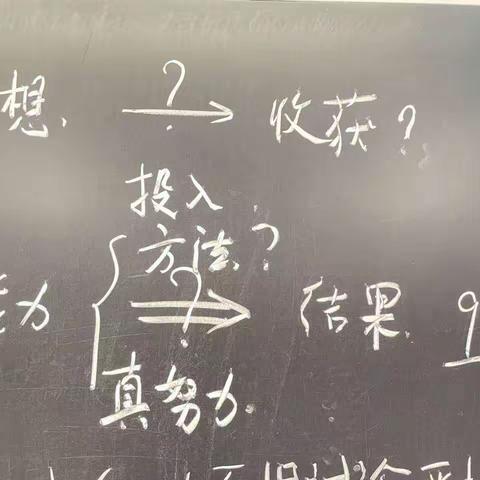 想. ? → 收获?
投入
方法?
力 { ? ⇒ 结果. 9
真努力.